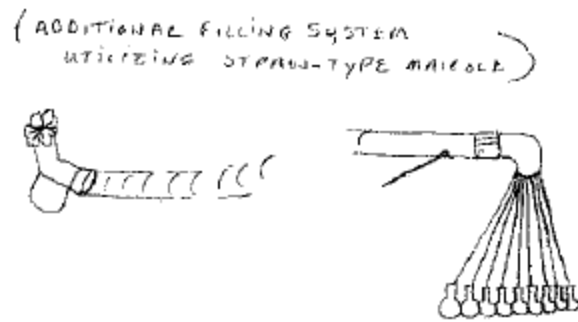 (ADDITIONAL FILLING SYSTEM
UTILIZING STRAW-TYPE